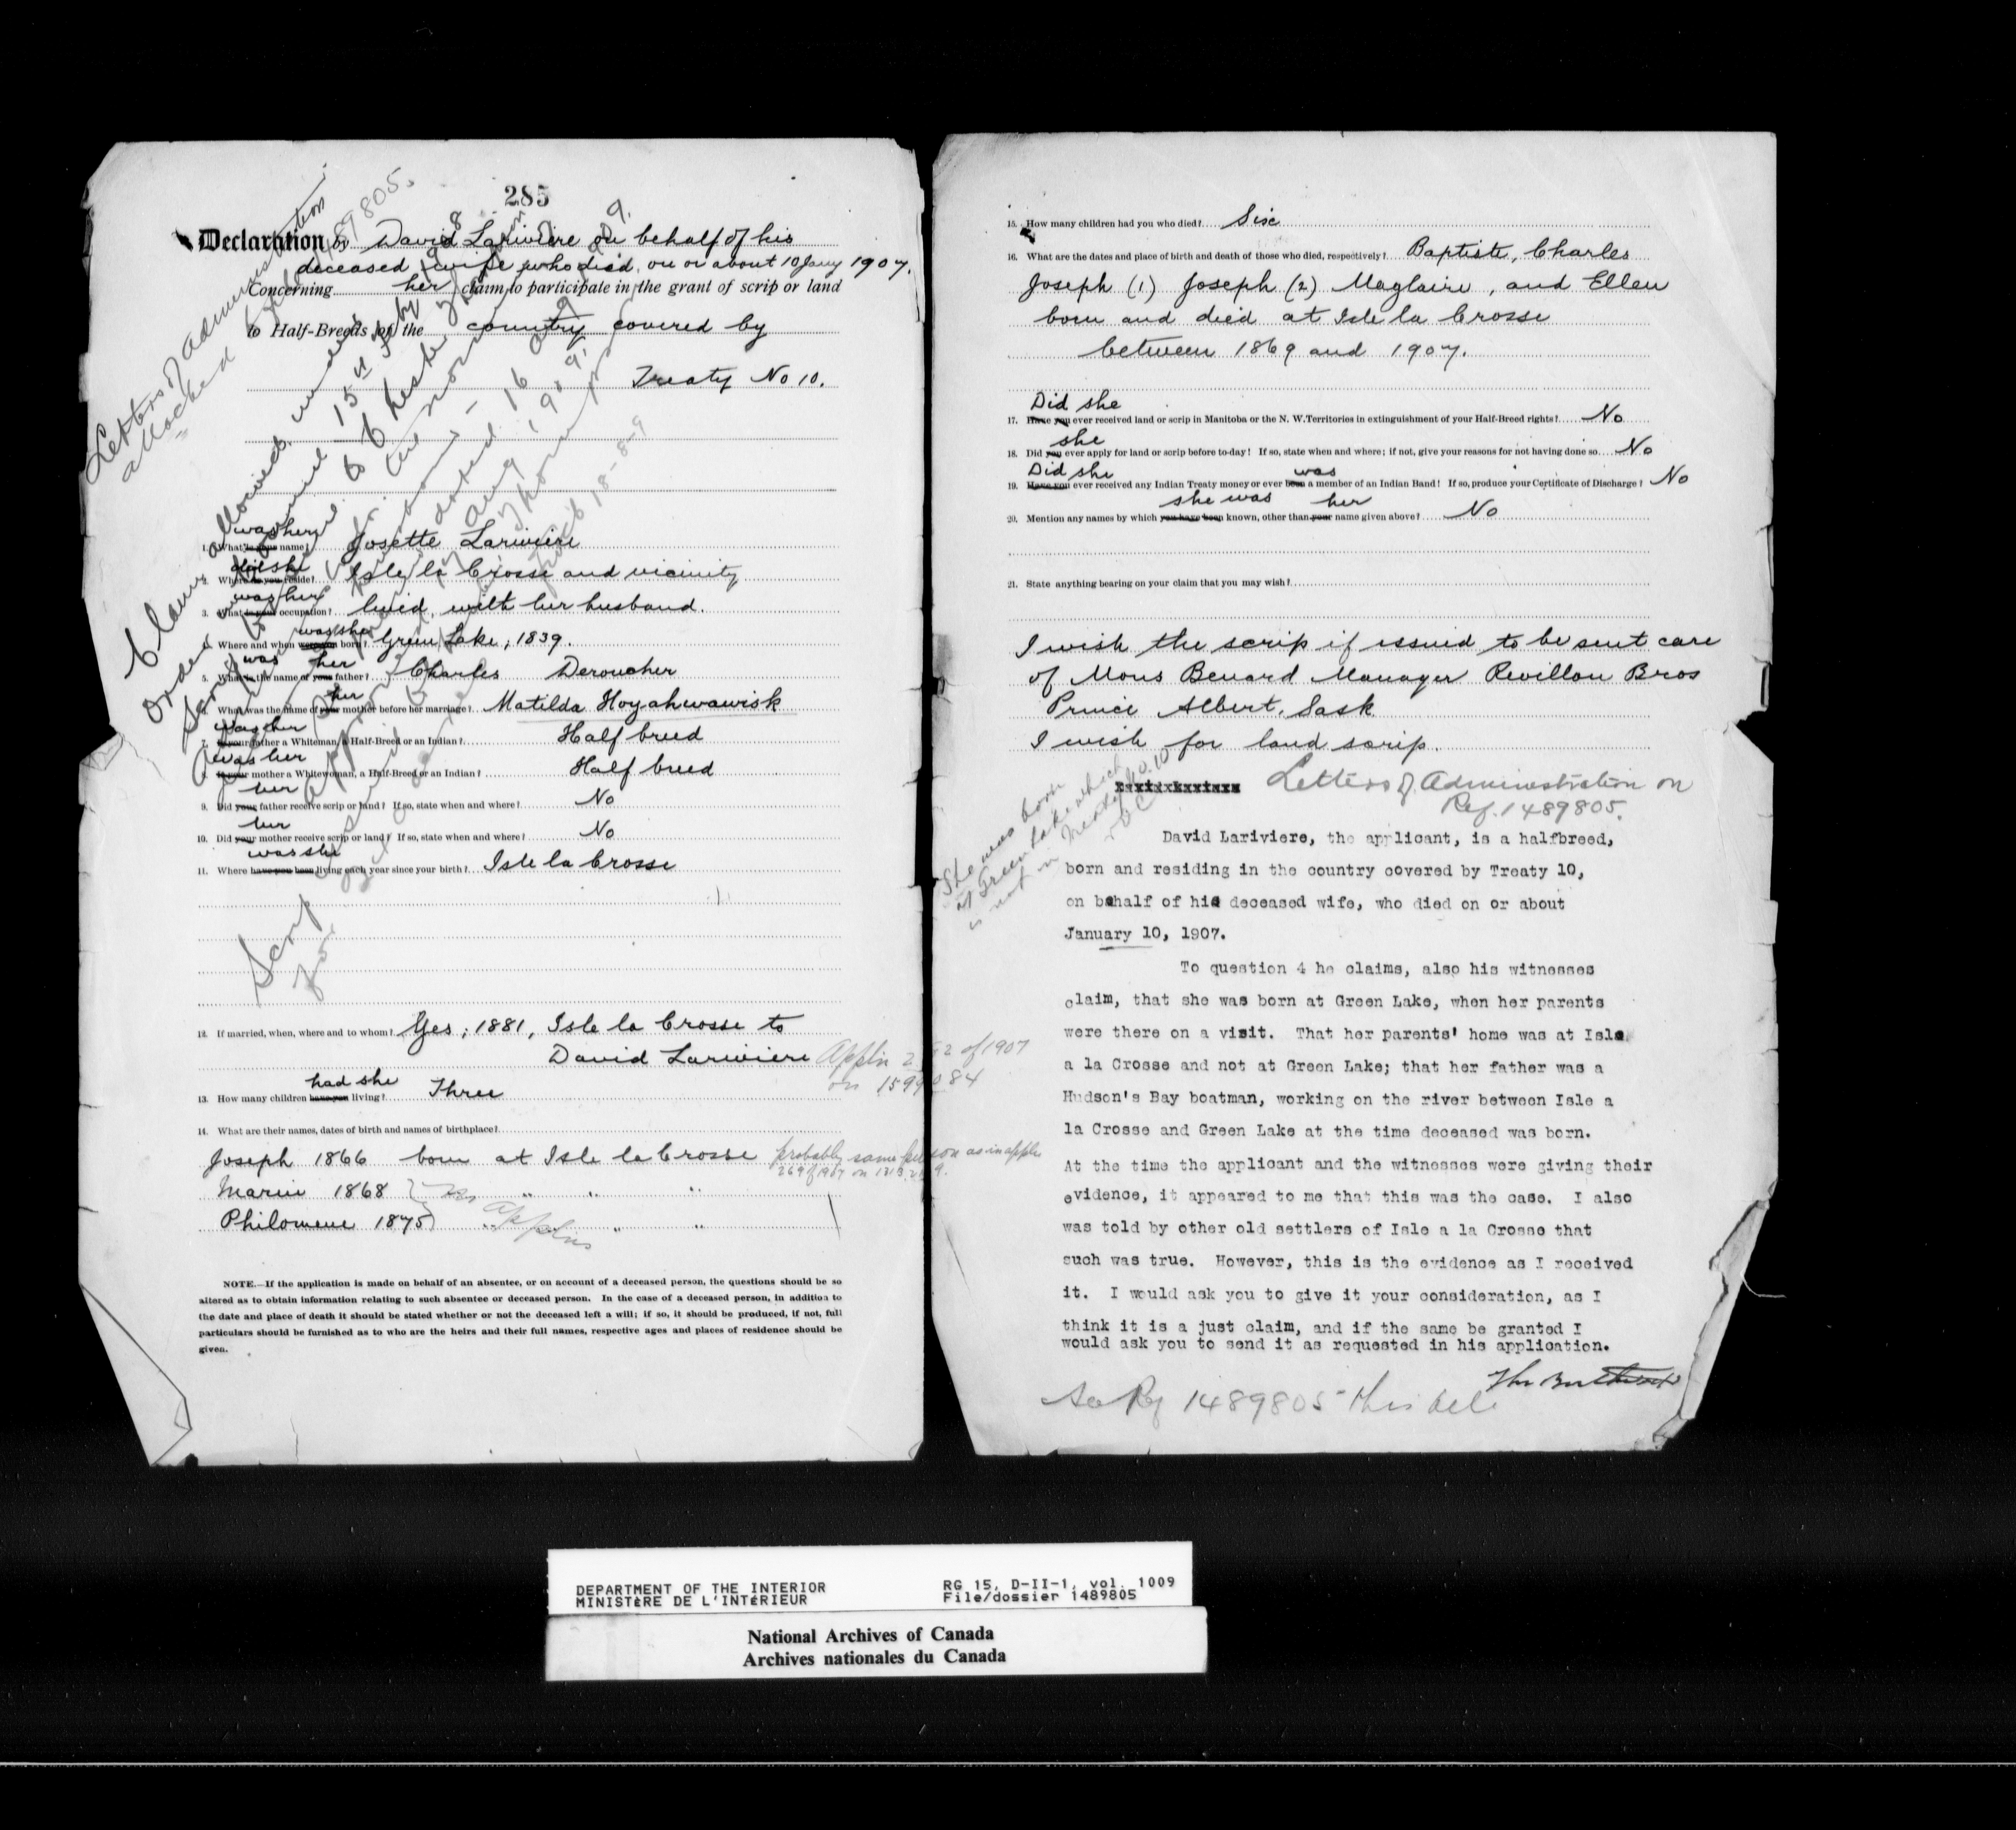 285
Declaration by David Lariviere on behalf of his
deceased wife who died, on or about 10 Jany 1907.
Concerning her claim to participate in the grant of scrip or land
to Half-Breeds of the country covered by
Treaty No 10.
Letters of Administration
attached
1489805.
Claim allowed
Scrip
was her
1. What is your name? Josette Lariviere
did she
2. Where do you reside? Isle la Crosse and vicinity
was her
3. What is your occupation? lived with her husband.
was she
4. Where and when were you born? Green Lake, 1839.
was her
5. What is the name of your father? Charles Deroucher
her
6. What was the name of your mother before her marriage? Matilda Hoyahwawisk
was her
7. Is your father a Whiteman, a Half-Breed or an Indian? Half breed
was her
8. Is your mother a Whitewoman, a Half-Breed or an Indian? Half breed
her
9. Did your father receive scrip or land? If so, state when and where? No
her
10. Did your mother receive scrip or land? If so, state when and where? No
was she
11. Where have you been living each year since your birth? Isle la Crosse
12. If married, when, where and to whom? Yes; 1881, Isle la Crosse to
David Lariviere
had she
13. How many children have you living? Three
14. What are their names, dates of birth and names of birthplace?
Joseph 1866 born at Isle la Crosse probably same person as in applin
Marie 1868 " " "
Philomene 1875 " " "
NOTE.—If the application is made on behalf of an absentee, or on account of a deceased person, the questions should be so
altered as to obtain information relating to such absentee or deceased person. In the case of a deceased person, in addition to
the date and place of death it should be stated whether or not the deceased left a will; if so, it should be produced, if not, full
particulars should be furnished as to who are the heirs and their full names, respective ages and places of residence should be
given.
15. How many children had you who died? Six
16. What are the dates and place of birth and death of those who died, respectively? Baptiste, Charles
Joseph (1) Joseph (2) Maglaire, and Ellen
born and died at Isle la Crosse
between 1869 and 1907.
Did she
17. Have you ever received land or scrip in Manitoba or the N. W. Territories in extinguishment of your Half-Breed rights? No
she
18. Did you ever apply for land or scrip before to-day? If so, state when and where; if not, give your reasons for not having done so. No
Did she was
19. Have you ever received any Indian Treaty money or ever been a member of an Indian Band? If so, produce your Certificate of Discharge? No
she was her
20. Mention any names by which you have been known, other than your name given above? No
21. State anything bearing on your claim that you may wish?
I wish the scrip if issued to be sent care
of Mons Benard Manager Revillon Bros
Prince Albert, Sask.
I wish for land scrip.
Letters of Administration on
Ref. 1489805.
She was born
at Green Lake which
is not in Treaty No. 10
David Lariviere, the applicant, is a halfbreed,
born and residing in the country covered by Treaty 10,
on behalf of his deceased wife, who died on or about
January 10, 1907.
To question 4 he claims, also his witnesses
claim, that she was born at Green Lake, when her parents
were there on a visit. That her parents' home was at Isle
a la Crosse and not at Green Lake; that her father was a
Hudson's Bay boatman, working on the river between Isle a
la Crosse and Green Lake at the time deceased was born.
At the time the applicant and the witnesses were giving their
evidence, it appeared to me that this was the case. I also
was told by other old settlers of Isle a la Crosse that
such was true. However, this is the evidence as I received
it. I would ask you to give it your consideration, as I
think it is a just claim, and if the same be granted I
would ask you to send it as requested in his application.
1489805
DEPARTMENT OF THE INTERIOR RG 15, D-II-1, vol. 1009
MINISTÈRE DE L'INTÉRIEUR File/dossier 1489805
National Archives of Canada
Archives nationales du Canada